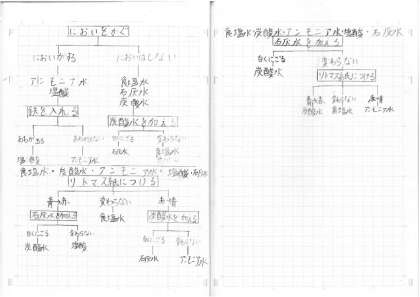 においをかぐ
においがする
においはしない
アンモニア水
塩酸
食塩水
石灰水
炭酸水
鉄を入れる
炭酸水を加える
あわが出る
変わらない
白くにごる
変わらない
塩酸
アンモニア水
石灰水
食塩水
食塩水・炭酸水・アンモニア水・塩酸・石灰水
リトマス紙につける
青→赤
変わらない
赤→青
石灰水を加える
食塩水
炭酸水を加える
白くにごる
変わらない
白くにごる
変わらない
炭酸水
塩酸
石灰水
アンモニア水
食塩水・炭酸水・アンモニア水・塩酸・石灰水
石灰水を加える
白くにごる
変わらない
炭酸水
リトマス紙につける
青→赤
変わらない
赤→青
食塩水
アンモニア水